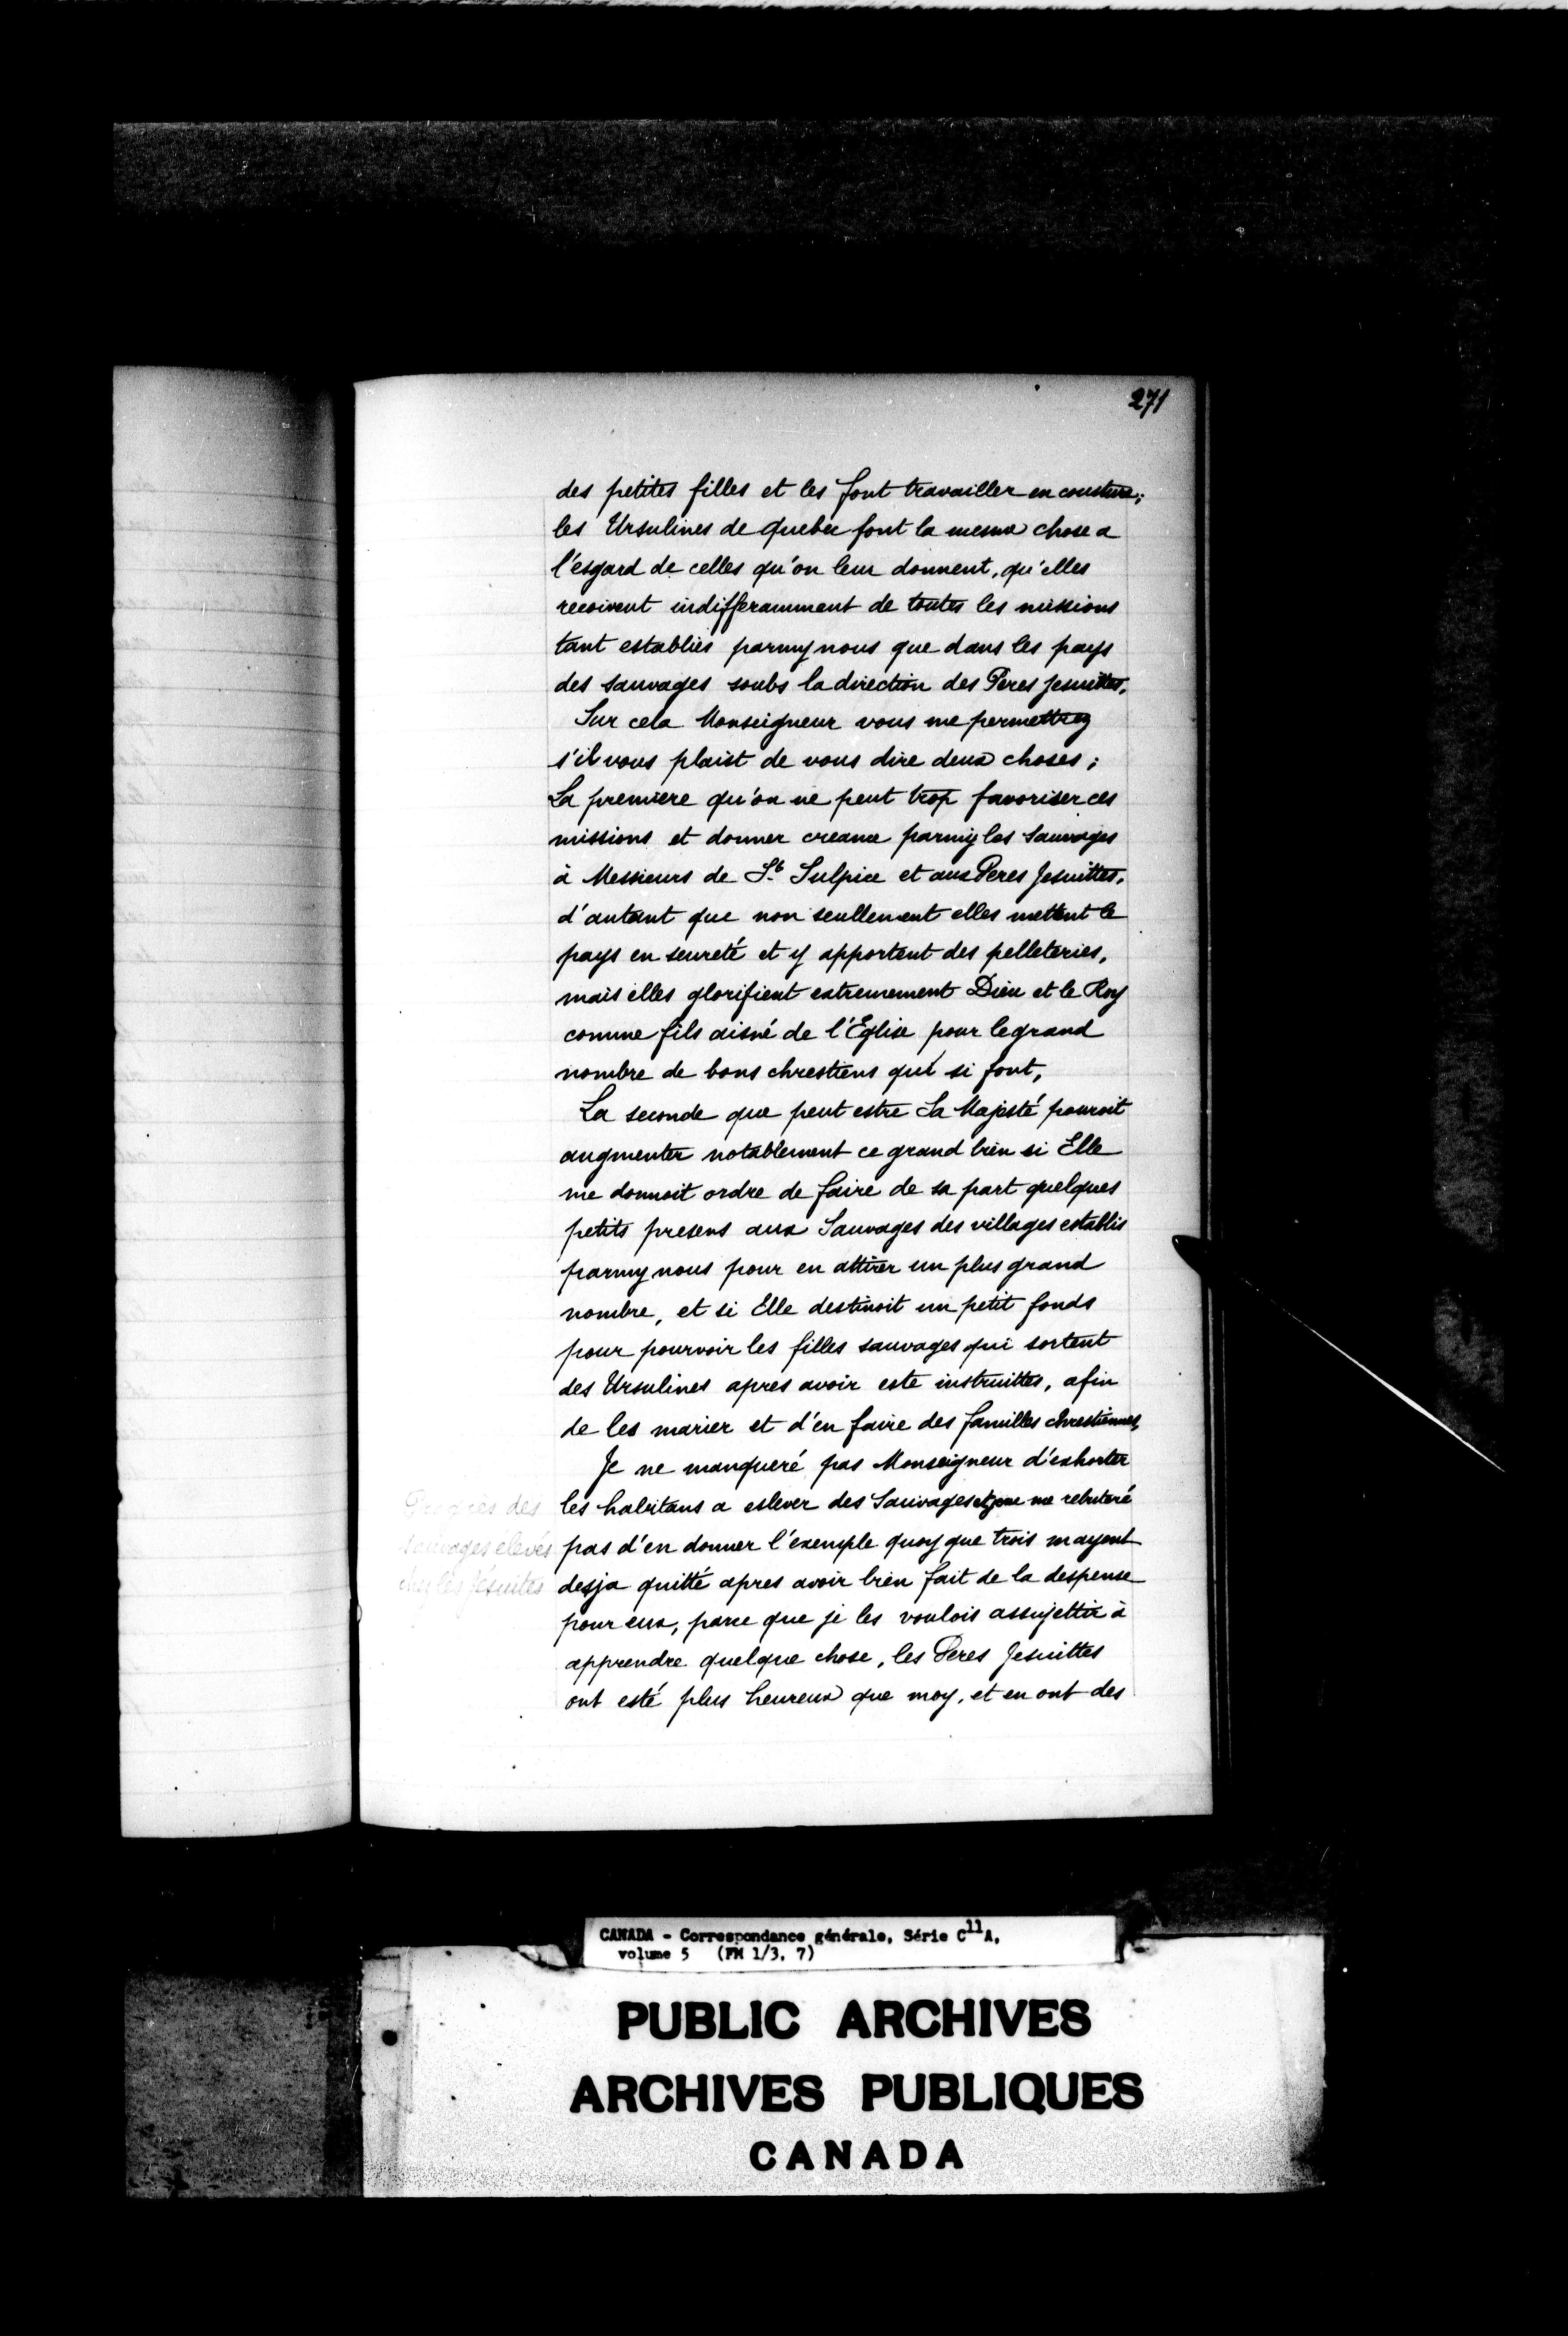 271
des petites filles et les font travailler en cousture;
les Ursulines de Quebec font la mesme chose a
l'esgard de celles qu'on leur donnent, qu'elles
recoivent indifferamment de toutes les missions
tant establies parmy nous que dans les pays
des sauvages soubs la direction des Peres Jesuittes.
Sur cela Monseigneur vous me permettrez
s'il vous plaist de vous dire deux choses;
La premiere qu'on ne peut trop favoriser ces
missions et donner creance parmy les Sauvages
à Messieurs de St Sulpice et aux Peres Jesuittes,
d'autant que non seullement elles mettent le
pays en seureté et y apportent des pelleteries,
mais elles glorifient extremement Dieu et le Roy
comme fils aisné de l'Eglise pour le grand
nombre de bons chrestiens qui si font,
La seconde que peut estre Sa Majesté pouroit
augmenter notablement ce grand bien si Elle
me donnoit ordre de faire de sa part quelques
petits presens aux Sauvages des villages establis
parmy nous pour en attirer un plus grand
nombre, et si Elle destinoit un petit fonds
pour pourvoir les filles sauvages qui sortent
des Ursulines apres avoir este instruittes, afin
de les marier et d'en faire des familles chrestiennes,
Je ne manqueré pas Monseigneur d'exhorter
les habitans a eslever des Sauvages et ne me rebuteré
pas d'en donner l'exemple quoy que trois mayent
desja quitté apres avoir bien fait de la despense
pour eux, parce que je les voulois assujettir à
apprendre quelque chose, les Peres Jesuittes
ont esté plus heureux que moy, et en ont des
Progrès des
sauvages élevés
chez les Jésuites
CANADA - Correspondance générale, Série C11A,
volume 5 (FM 1/3, 7)
PUBLIC ARCHIVES
ARCHIVES PUBLIQUES
CANADA